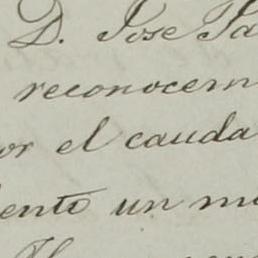 D. Jose
reconocem
or el cauda
iente un m